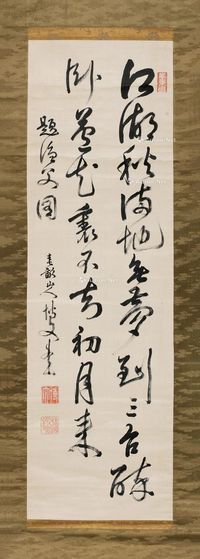 江湖秋満地無夢到三台酔
臥芦花裏不知初月来
題漁父図
春畝山人博文書